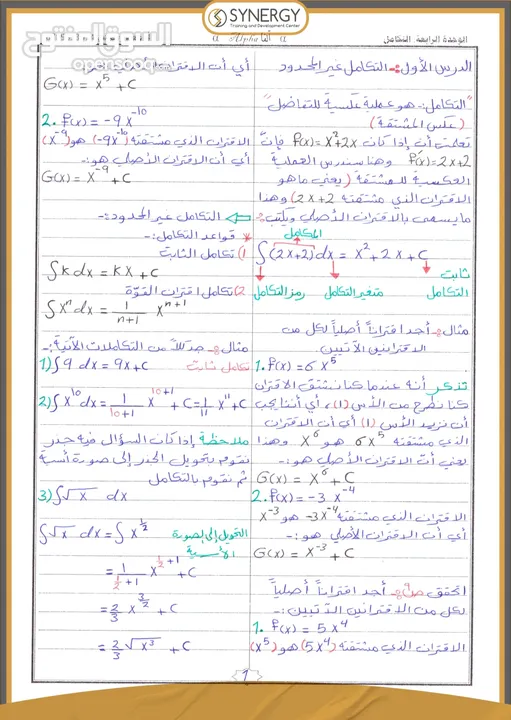 SYNERGY
Training and Development Center
السوق المفتوح
opensooq.com
الوحدة الرابعة التكامل
α Alpha ألفا α
الدرس الأول:- التكامل غير المحدود
"التكامل:- هو عملية عكسية للتفاضل"
(عكس المشتقة)
تعلمت أن إذا كان f(x) = x²+2x فإن
f'(x) = 2x+2 وهنا سندرس العملية
العكسية للمشتقة (يعني ما هو
الاقتران الذي مشتقته 2x+2) وهذا
ما يسمى بالاقتران الأصلي ويكتب:-
المكامل
∫(2x+2)dx = x² + 2x + C
ثابت التكامل
متغير التكامل
رمز التكامل
مثال:- أجد اقتراناً أصلياً لكل من
الاقترانين الآتيين.
1. f(x) = 6x⁵
تذكر أنه عندما كنا نشتق الاقتران
كنا نطرح من الأس (1)، أي أننا يجب
أن نزيد الأس (1) أي أن الاقتران
الذي مشتقته 6x⁵ هو x⁶ وهذا
يعني أن الاقتران الأصلي هو:-
G(x) = x⁶ + C
2. f(x) = -3x⁻⁴
الاقتران الذي مشتقته -3x⁻⁴ هو x⁻³
أي أن الاقتران الأصلي هو:-
G(x) = x⁻³ + C
أتحقق من فهمي:- أجد اقتراناً أصلياً
لكل من الاقترانين الآتيين:-
1. f(x) = 5x⁴
الاقتران الذي مشتقته (5x⁴) هو (x⁵)
أي أن الاقتران الأصلي هو:-
G(x) = x⁵ + C
2. f(x) = -9x⁻¹⁰
الاقتران الذي مشتقته (-9x⁻¹⁰) هو (x⁻⁹)
أي أن الاقتران الأصلي هو:-
G(x) = x⁻⁹ + C
⇐ التكامل غير المحدود:-
* قواعد التكامل:-
1) تكامل الثابت
∫k dx = kx + C
2) تكامل اقتران القوة
∫xⁿ dx = 1/(n+1) xⁿ⁺¹
مثال:- جد كلاً من التكاملات الآتية:-
1) ∫9 dx = 9x + C تكامل ثابت
2) ∫x¹⁰ dx = 1/(10+1) x¹⁰⁺¹ + C = 1/11 x¹¹ + C
ملاحظة إذا كان السؤال فيه جذر
نقوم بتحويل الجذر إلى صورة أسية
ثم نقوم بالتكامل
3) ∫√x dx
∫√x dx = ∫x^(1/2) التحويل إلى الصورة الأسية
= 1/(1/2+1) x^(1/2+1) + C
= 2/3 x^(3/2) + C
= 2/3 √x³ + C
1